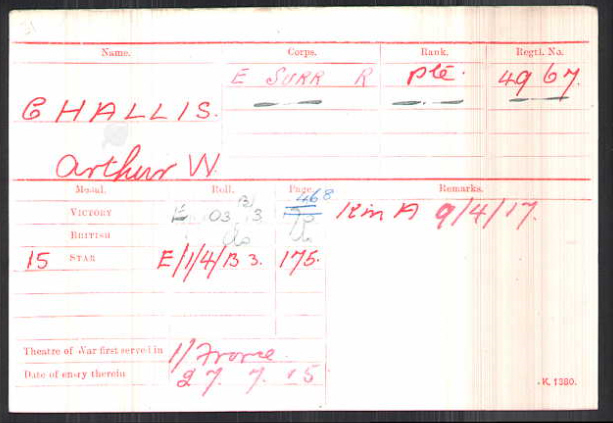 Name. Corps. Rank. Regtl. No.
E SURR R Pte. 4967.
CHALLIS.
Arthur W.
Medal. Roll. Page. Remarks.
VICTORY 468 Kin A 9/4/17.
BRITISH do do
15 STAR E/1/4/B 3. 175.
Theatre of War first served in 1/France.
Date of entry therein 27. 7. 15
K. 1380.